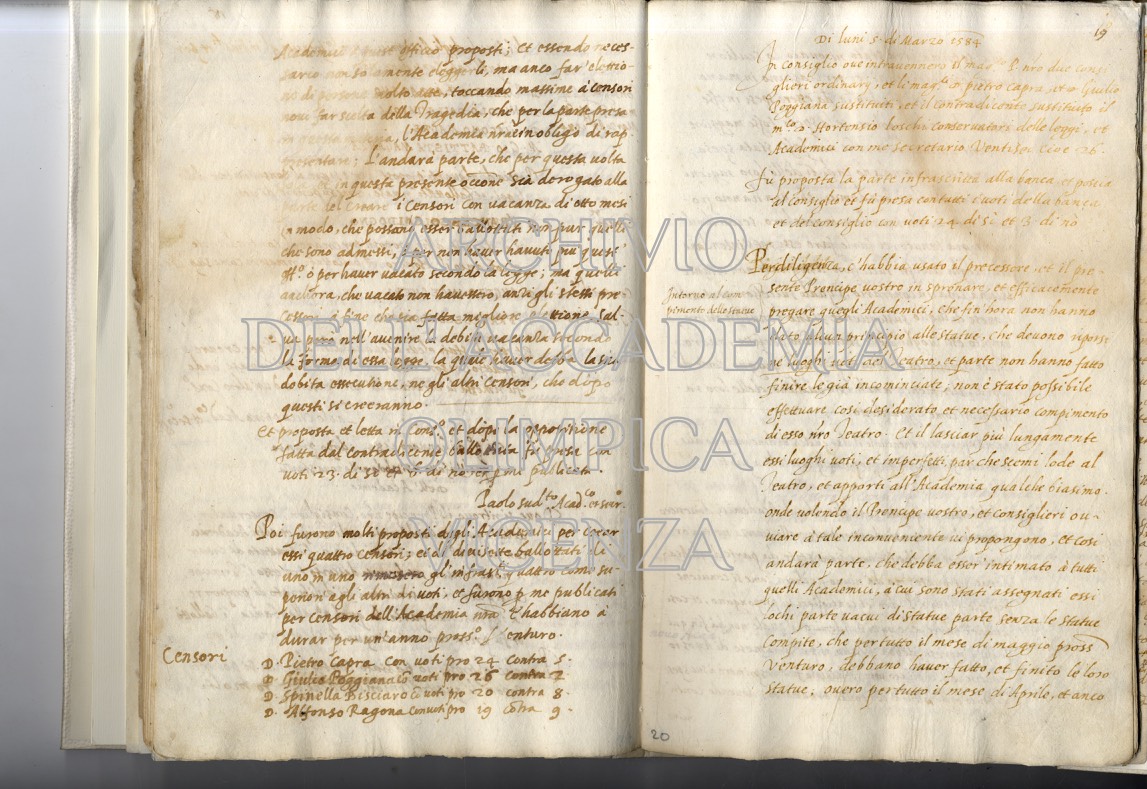 Academici à quest'officio proposti; Et essendo neces-
sario non solamente eleggerli, ma anco far' elettio-
ne di persone molto atte, toccando massime à Censori
novi far scelta della Tragedia, che per la parte presa
l'Academia nrã è in obligo di rap-
presentare; L'andarà parte, che per questa volta
in questa presente occone sia derogato alla
parte del creare i Censori con vacanza di otto mesi
in modo, che possano esser ballottati non pur quelli
che sono admessi, ò per non haver havuti più questi
off.º ò per haver vacato secondo la legge; ma quelli
anchora, che vacato non havessero, anzi gli stessi pre-
cessori à fine che sia fatta migliore elettione, sal-
va però nell'avenire la debita vacanza secondo
la forma di essa legge, la quale haver debba la su-
dobita essecutione, ne gli altri Censori, che dòpo
questi si creeranno.
Et proposta et letta in Cons.º et dòpo la
fatta dal contradicente ballottata fu presa con
voti 23. di sì et 5. di nò et publicata.
Paolo Acad.co et
Poi furono molti proposti degli Academici per crear
essi quattro censori; ei quali ballottati
uno in uno rimasero gl'infrasti quattro come su-
periori agli altri di voti, et furono p me publicati
per censori dell'Academia nrã c'habbiano à
durar per un'anno pross.º venturo.
Censori
D. Pietro Capra con voti pro 24 contra 5.
D. Giulio Poggiana cõ voti pro 26 contra 2
D. Spinella Bisciaro cõ voti pro 20 contra 8.
D. Alfonso Ragona con voti pro 19 cõtra 9.
19
Di luni 5. di Marzo 1584
In consiglio ove intravennero il mag.co P. nro due consi-
glieri ordinarij, et li mag.ci D. pietro Capra, et D. Giulio
Poggiana sustituti, et il contradicente sustituto il
m.co D. Hortensio Loschi conservatore delle leggi, et
Academici con me secretario Ventisei cioè 26.
Fù proposta la parte infrascritta alla banca, et poscia
al consiglio et fù presa con tutti i voti della banca
et del consiglio con voti 24. di sì et 3. di nò
Intorno al com-
pimento delle statue
Per diligenza, c'habbia usato il precessore, et il pre-
sente Prencipe vostro in spronare, et efficacemẽte
pregare quegli Academici, che fin'hora non hanno
dato alcun principio alle statue, che devono riporsi
ne luoghi voti del Teatro, et parte non hanno fatto
finire le già incominciate, non è stato possibile
effettuare così desiderato et necessario compimento
di esso nrõ Teatro. Et il lasciar più lungamente
essi luoghi voti, et imperfetti par che scemi lode al
Teatro, et apporti all'Academia qualche biasimo.
onde volendo il Prencipe vostro, et consiglieri ov-
viare à tale inconveniente vi propongono, et così
andarà parte, che debba esser intimato à tutti
quelli Academici, à cui sono stati assegnati essi
lochi parte vacui di statue parte senza le statue
compite, che per tutto il mese di maggio pross.
Venturo, debbano haver fatto, et finito le loro
statue, overo per tutto il mese di Aprile, et anco
20
ARCHIVIO
DELL'ACCADEMIA
OLIMPICA
VICENZA